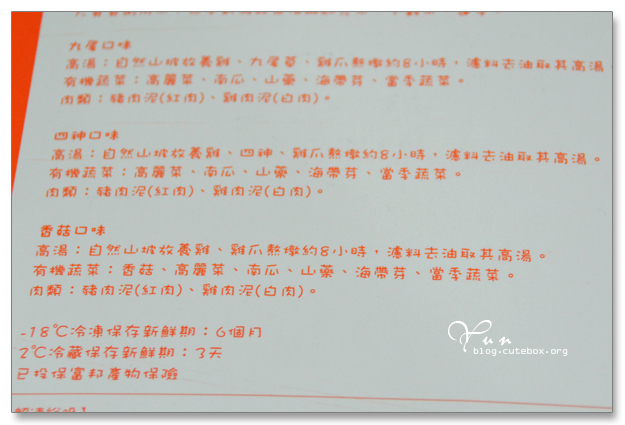 九尾口味
高湯：自然山坡放養雞、九尾草、雞爪熬燉約8小時，濾料去油取其高湯
有機蔬菜：高麗菜、南瓜、山藥、海帶芽、當季蔬菜。
肉類：豬肉泥(紅肉)、雞肉泥(白肉)。
四神口味
高湯：自然山坡放養雞、四神、雞爪熬燉約8小時，濾料去油取其高湯。
有機蔬菜：高麗菜、南瓜、山藥、海帶芽、當季蔬菜。
肉類：豬肉泥(紅肉)、雞肉泥(白肉)。
香菇口味
高湯：自然山坡放養雞、雞爪熬燉約8小時，濾料去油取其高湯。
有機蔬菜：香菇、高麗菜、南瓜、山藥、海帶芽、當季蔬菜。
肉類：豬肉泥(紅肉)、雞肉泥(白肉)。
-18℃冷凍保存新鮮期：6個月
2℃冷藏保存新鮮期：3天
已投保富邦產物保險
Yun
blog.cutebox.org